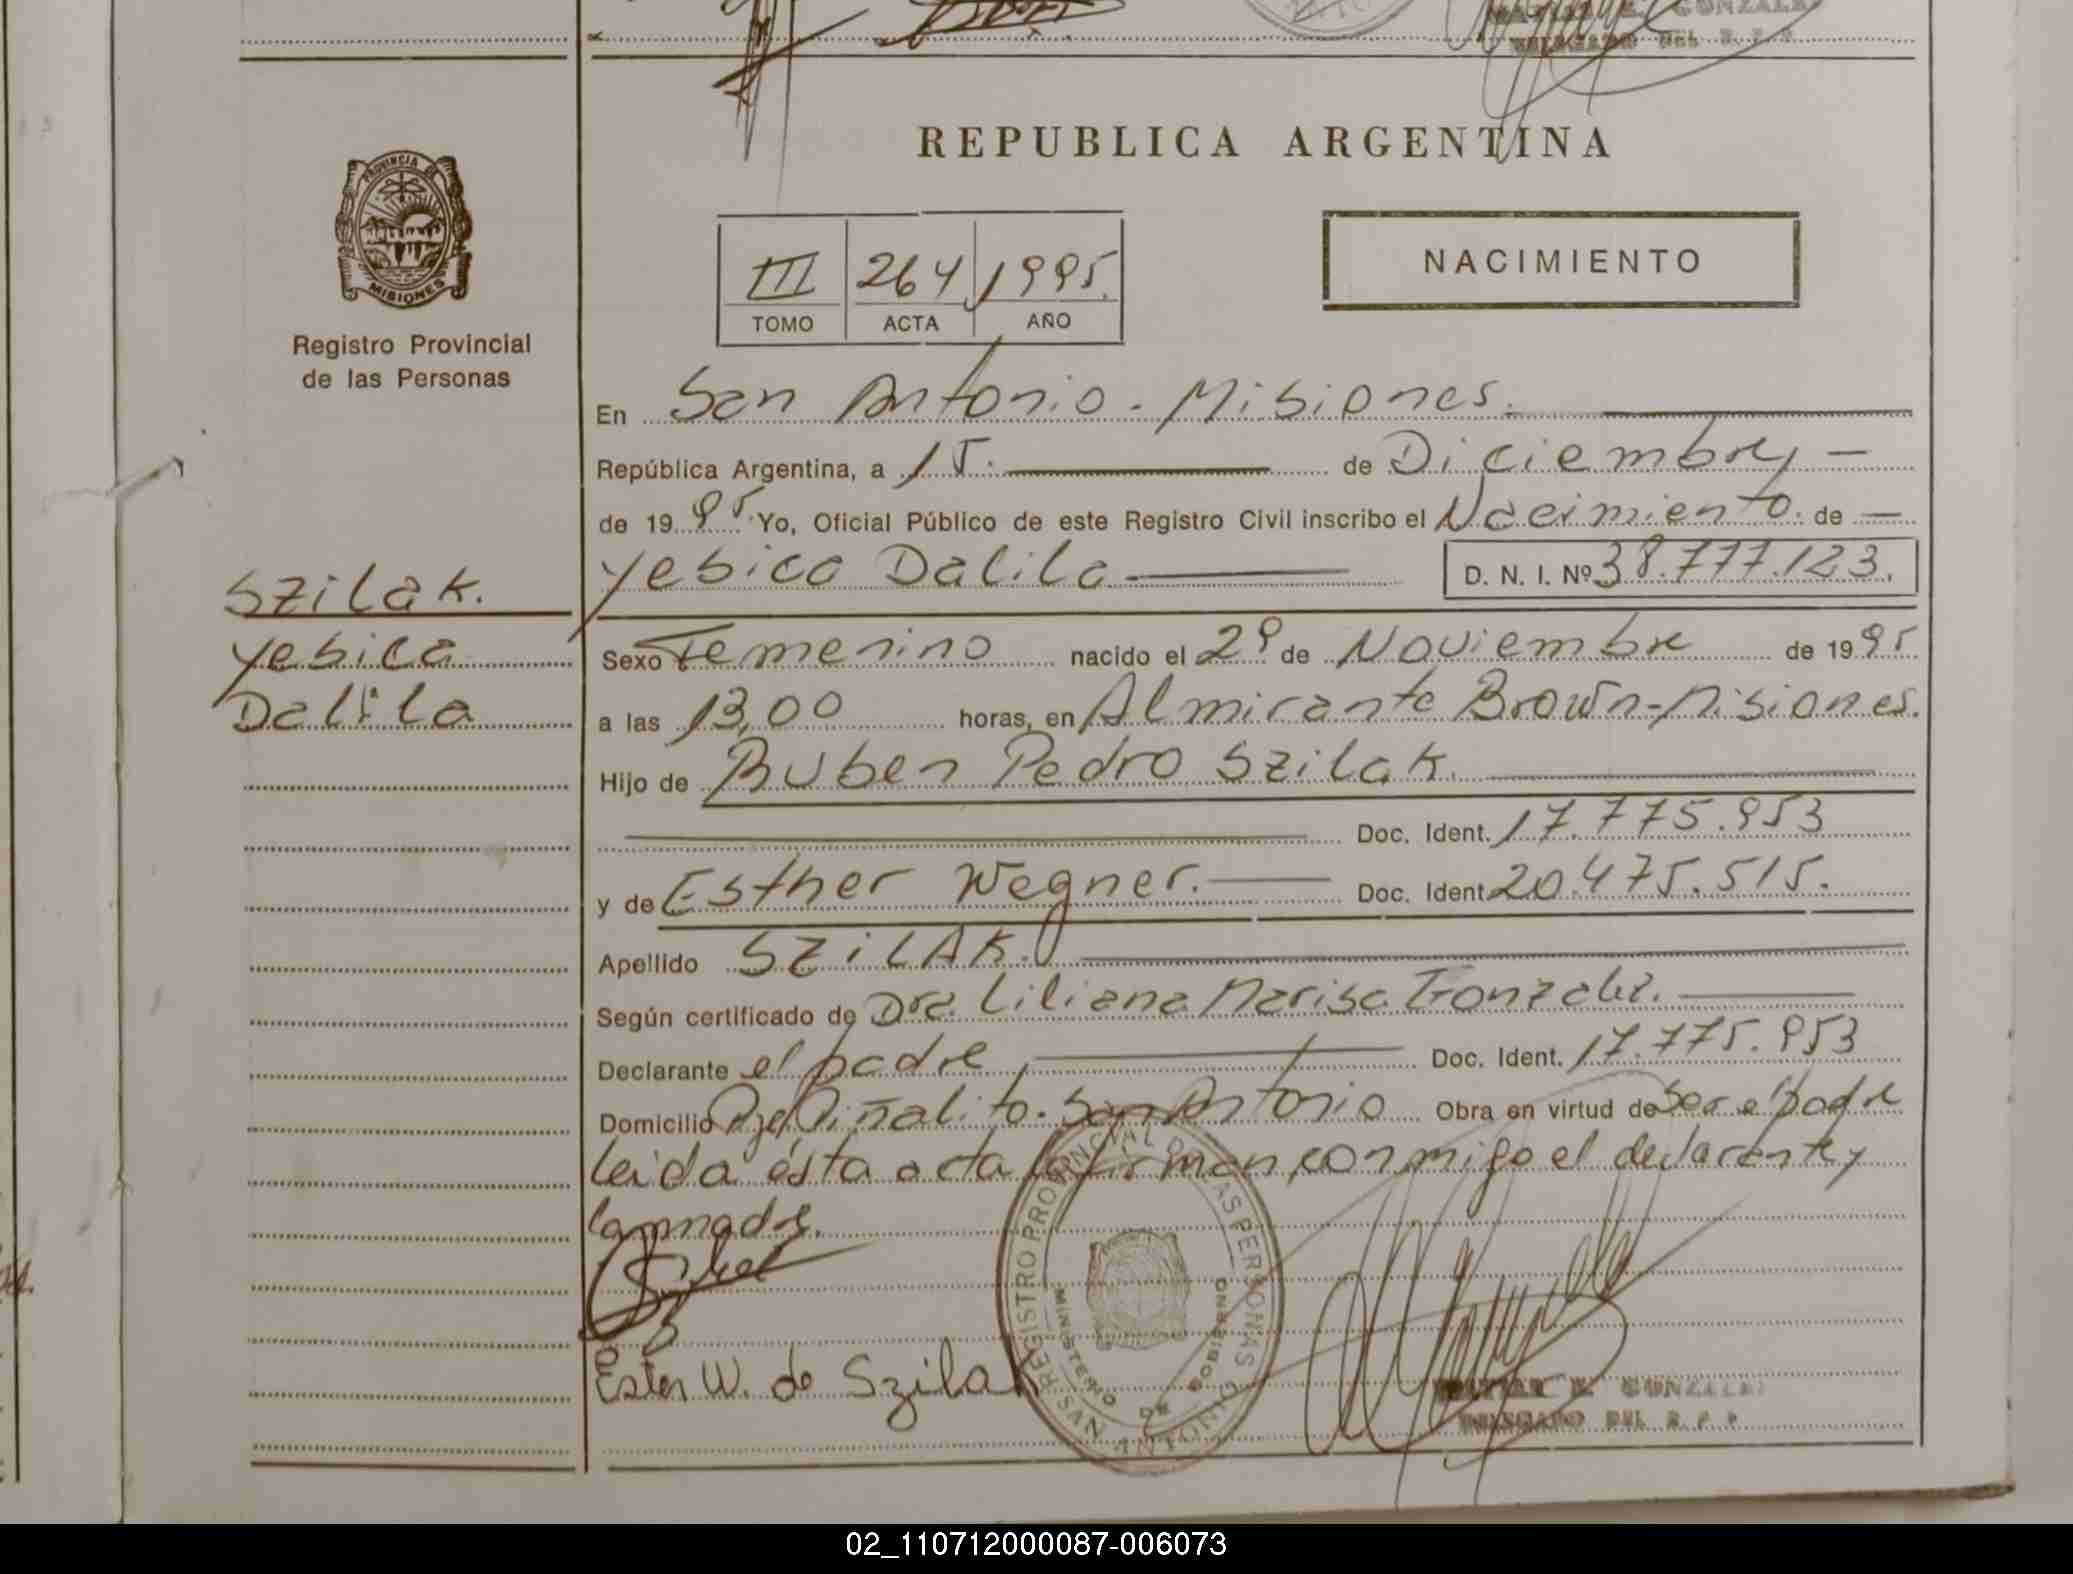 GONZALE
DELEGADO DEL R. P. P.
REPUBLICA ARGENTINA
PROVINCIA DE
MISIONES
Registro Provincial
de las Personas
III 264 1995.
TOMO ACTA AÑO
NACIMIENTO
En San Antonio - Misiones.
República Argentina, a 15. de Diciembre
de 1995 Yo, Oficial Público de este Registro Civil inscribo el Nacimiento de
Yesica Dalila D. N. I. Nº 38.777.123.
Szilak.
Yesica
Dalila
Sexo Femenino nacido el 29 de Noviembre de 1995.
a las 13,00 horas, en Almirante Brown-Misiones.
Hijo de Ruben Pedro Szilak.
Doc. Ident. 17.775.953
y de Esther Wegner. Doc. Ident. 20.475.515.
Apellido SZiLAK.
Según certificado de Dra. Liliana Marisa Gonzalez.
Declarante el padre, Doc. Ident. 17.775.953
Domicilio Pje Piñalito. San Antonio Obra en virtud de Ser el padre
leida ésta acta la firman, conmigo el declarante y
la madre.
Ester W. de Szilak
REGISTRO PROVINCIAL DE LAS PERSONAS
MINISTERIO DE GOBIERNO
SAN ANTONIO
GONZALE
DELEGADO DEL R. P. P.
02_110712000087-006073